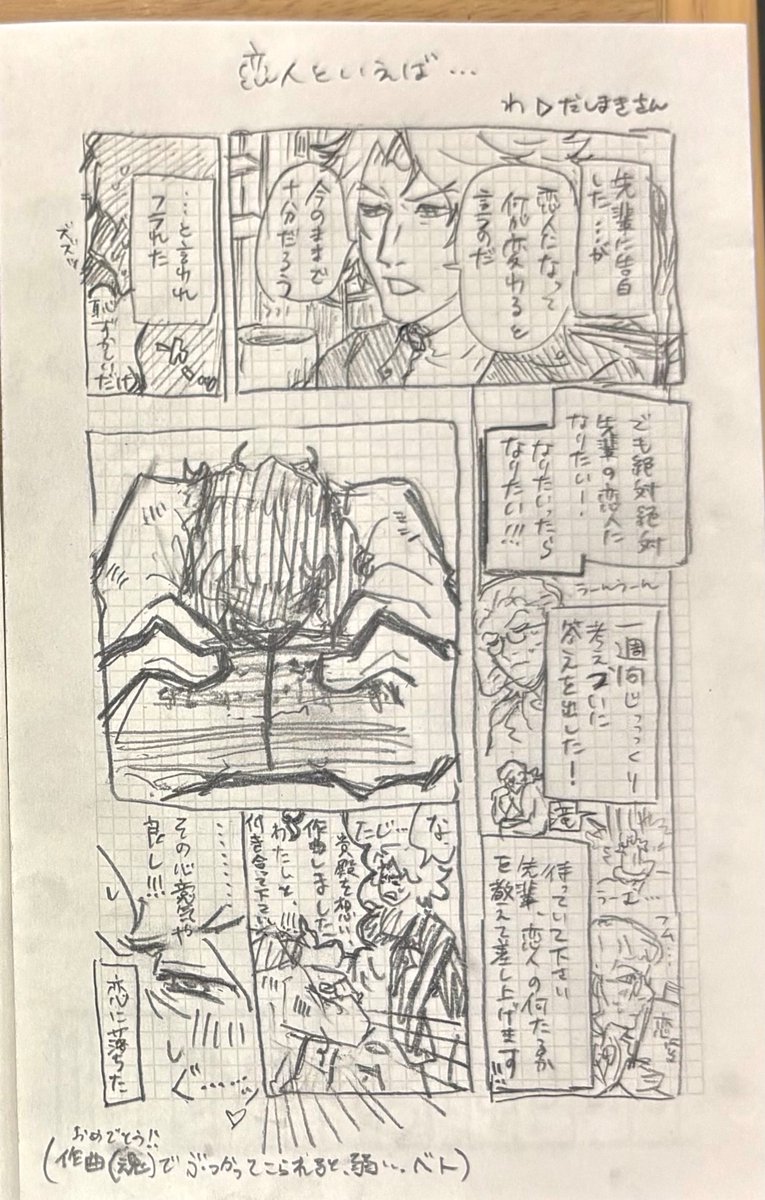 恋人といえば…
わ▷だしまきさん
先輩に告白
した…が
恋人になって
何が変わると
言うのだ
今のままで
十分だろう
…と言われ
フラれた
ズズッ
恥ずかしいだけ
でも絶対絶対
先輩の恋人に
なりたいー、
なりたいったら
なりたい!!!
うーんうーん
一週間じっっくり
考えついに
答えを出した!
滝
うーむ…
フム…
恋
待っていて下さい
先輩、恋人の何たるか
を教えて差し上げます!!!
な、
たじ…
貴殿を想い
作曲しました
わたしと、
付き合って下さい!!!
………
その心意気や
良し!!!
じ〜……
恋に落ちた
おめでとう!!
(作曲(魂)でぶつかってこられると、弱い…ベト)